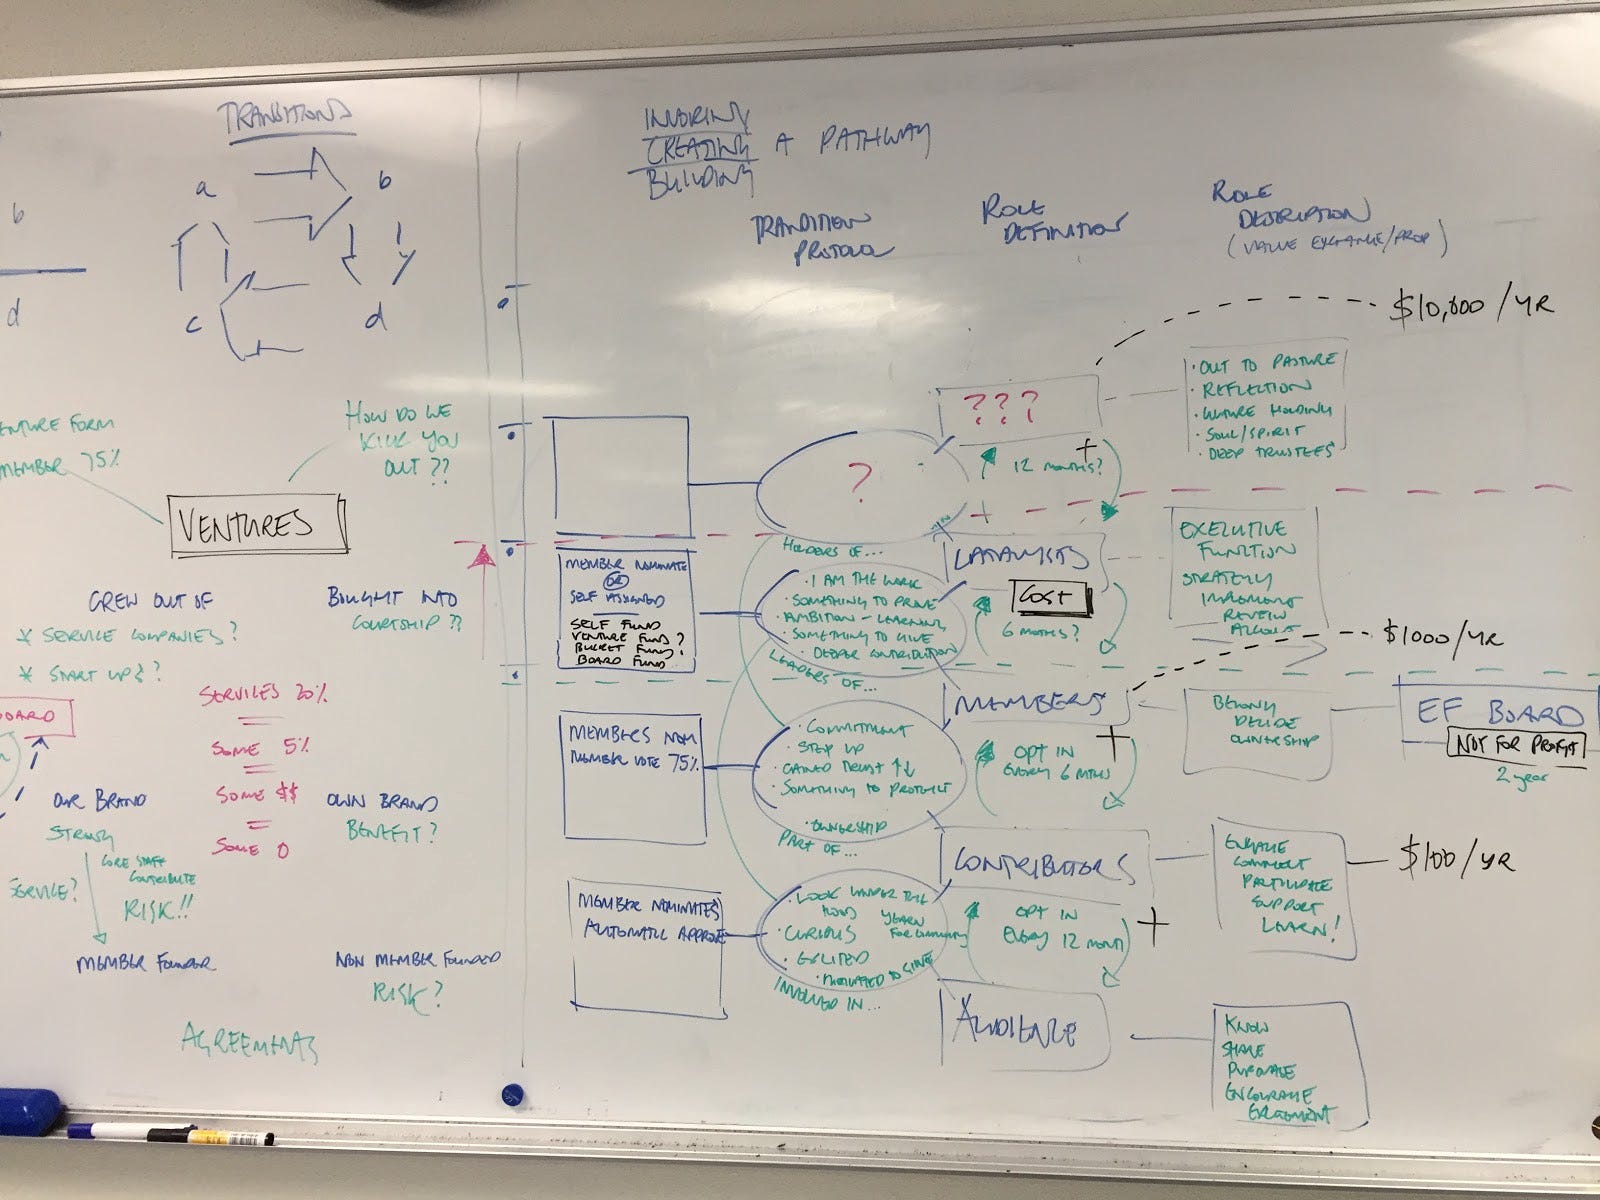 TRANSITIONS
a
b
c
d
b
d
ENTURE FORM
MEMBER 75%
HOW DO WE
KICK YOU
OUT ??
VENTURES
GREW OUT OF
* SERVICE COMPANIES?
* START UPS?
BOUGHT INTO
COURTSHIP ??
SERVICES 20%
SOME 5%
SOME $$
SOME 0
OARD
OUR BRAND
STRONG
CORE STAFF
CONTRIBUTE
RISK!!
SERVICE?
OWN BRAND
BENEFIT?
MEMBER FOUNDER
NON MEMBER FOUNDED
RISK?
AGREEMENTS
CREATING A PATHWAY
BUILDING
TRANSITION
PROTOCOL
ROLE
DEFINITION
ROLE
DESCRIPTION
(VALUE EXCHANGE/PROP)
$10,000/YR
? ? ?
12 MONTHS?
+
• OUT TO PASTURE
• REFLECTION
• CULTURE HOLDING
• SOUL/SPIRIT
• DEEP TRUSTEES
?
+
HOLDERS OF...
MEMBER NOMINATE
OR
SELF ASSIGNED
SELF FUND
VENTURE FUND?
BUCKET FUND?
BOARD FUND
• I AM THE WORK
• SOMETHING TO PROVE
• AMBITION - LEARNING
• SOMETHING TO GIVE
• DEEPER CONTRIBUTION
LEADERS OF...
CATALYSTS
COST
6 MONTHS?
EXECUTIVE
FUNCTION
STRATEGY
IMPLEMENT
REVIEW
ACCOUNT
$1000/YR
MEMBERS NOM
MEMBER VOTE 75%
• COMMITMENT
• STEP UP
• GAINED TRUST ↑↓
• SOMETHING TO PROTECT
• OWNERSHIP
PART OF...
MEMBERS
OPT IN
EVERY 6 MTHS
+
BELONG
DECIDE
OWNERSHIP
EF BOARD
NOT FOR PROFIT
2 year
MEMBER NOMINATES
AUTOMATIC APPROVE
• LOOK UNDER THE
HOOD
YEARN
FOR COMMUNITY
• CURIOUS
• EXCITED
• MOTIVATED TO GIVE
INVOLVED IN...
CONTRIBUTORS
OPT IN
EVERY 12 MONTH
+
ENGAGE
CONNECT
PARTICIPATE
SUPPORT
LEARN!
$100/YR
AUDIENCE
KNOW
SHARE
ENCOURAGE